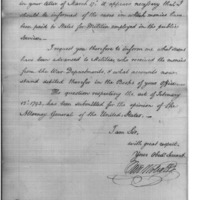 in your letter of March 17. it appears necessary that I
should be informed of the cases in which monies have
been paid to States for Militia employed in the public
service.
I request you therefore to inform me what sums
have been advanced to Militia, who received the monies
from the War Department, & what accounts remain
unsettled therefor in the Books of your office.
The question respecting the act of February
1793, has been submitted for the opinion of the
Attorney General of the United States.
I am Sir,
with great respect
Your Obed Servant